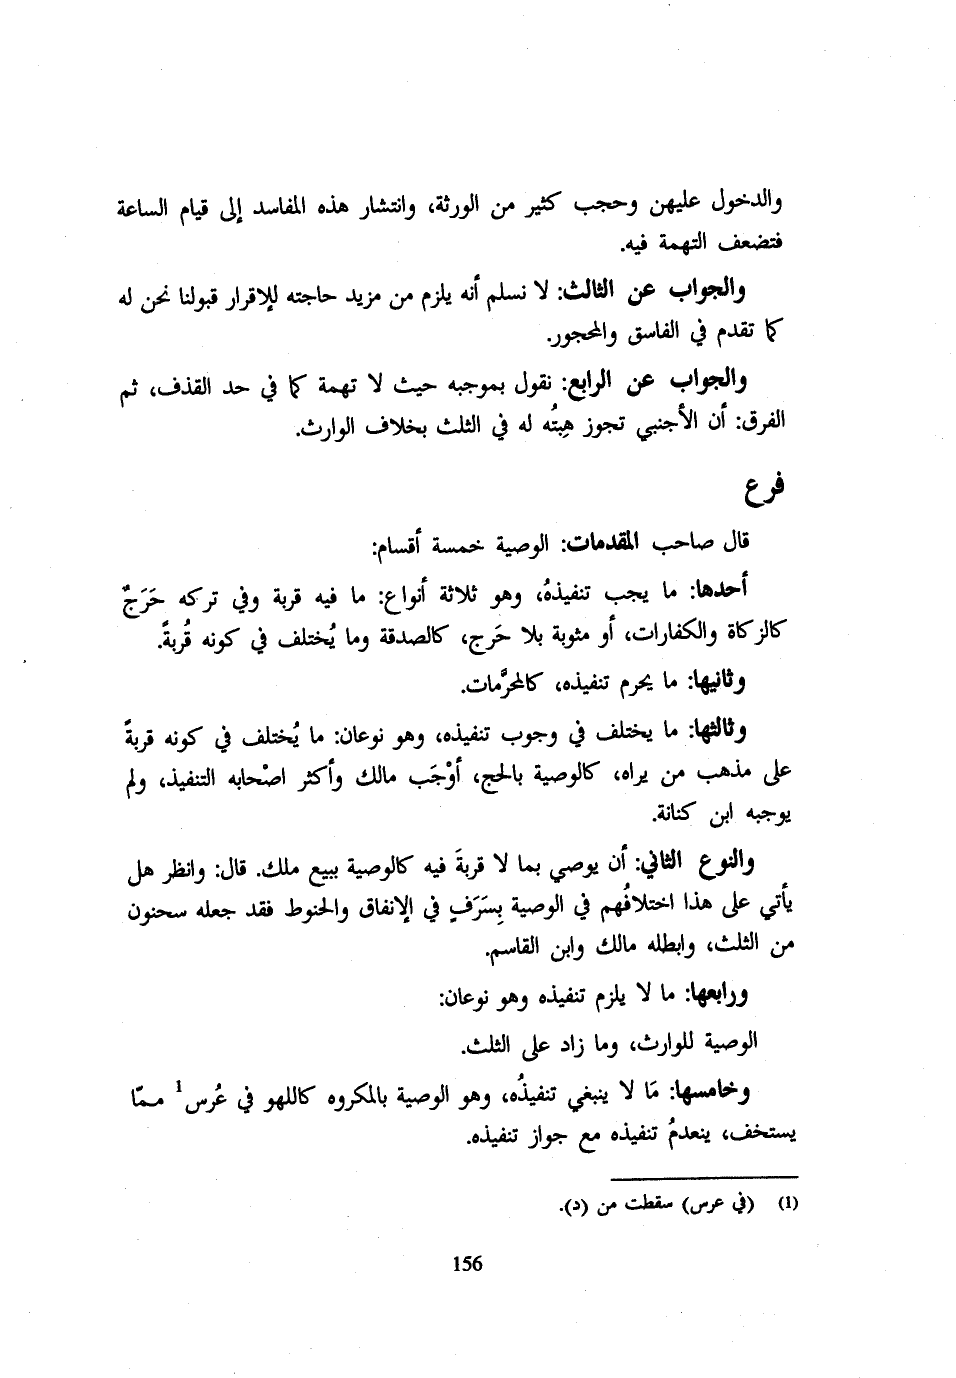 والدخول عليهن وحجب كثير من الورثة، وانتشار هذه المفاسد إلى قيام الساعة
فتضعف التهمة فيه.
والجواب عن الثالث: لا نسلم أنه يلزم من مزيد حاجته للإقرار قبولنا نحن له
كما تقدم في الفاسق والمحجور.
والجواب عن الرابع: نقول بموجبه حيث لا تهمة كما في حد القذف، ثم
الفرق: أن الأجنبي تجوز هِبتُه له في الثلث بخلاف الوارث.
فرع
قال صاحب المقدمات: الوصية خمسة أقسام:
أحدها: ما يجب تنفيذهُ، وهو ثلاثة أنواع: ما فيه قربة وفي تركه حَرَجٌ
كالزكاة والكفارات، أو مثوبة بلا حَرج، كالصدقة وما يُختلف في كونه قُربةً.
وثانيها: ما يحرم تنفيذه، كالمحرَّمات.
وثالثها: ما يختلف في وجوب تنفيذه، وهو نوعان: ما يُختلف في كونه قربةً
على مذهب من يراه، كالوصية بالحج، أوْجَب مالك وأكثر اصْحابه التنفيذ، ولم
يوجبه ابن كنانة.
والنوع الثاني: أن يوصي بما لا قربةَ فيه كالوصية ببيع ملك. قال: وانظر هل
يأتي على هذا اختلافُهم في الوصية بِسَرَفٍ في الإنفاق والحنوط فقد جعله سحنون
من الثلث، وابطله مالك وابن القاسم.
ورابعها: ما لا يلزم تنفيذه وهو نوعان:
الوصية للوارث، وما زاد على الثلث.
وخامسها: مَا لا ينبغي تنفيذُه، وهو الوصية بالمكروه كاللهو في عُرس¹ ممّا
يستخف، ينعدمُ تنفيذه مع جواز تنفيذه.
(1) (في عرس) سقطت من (د).
156